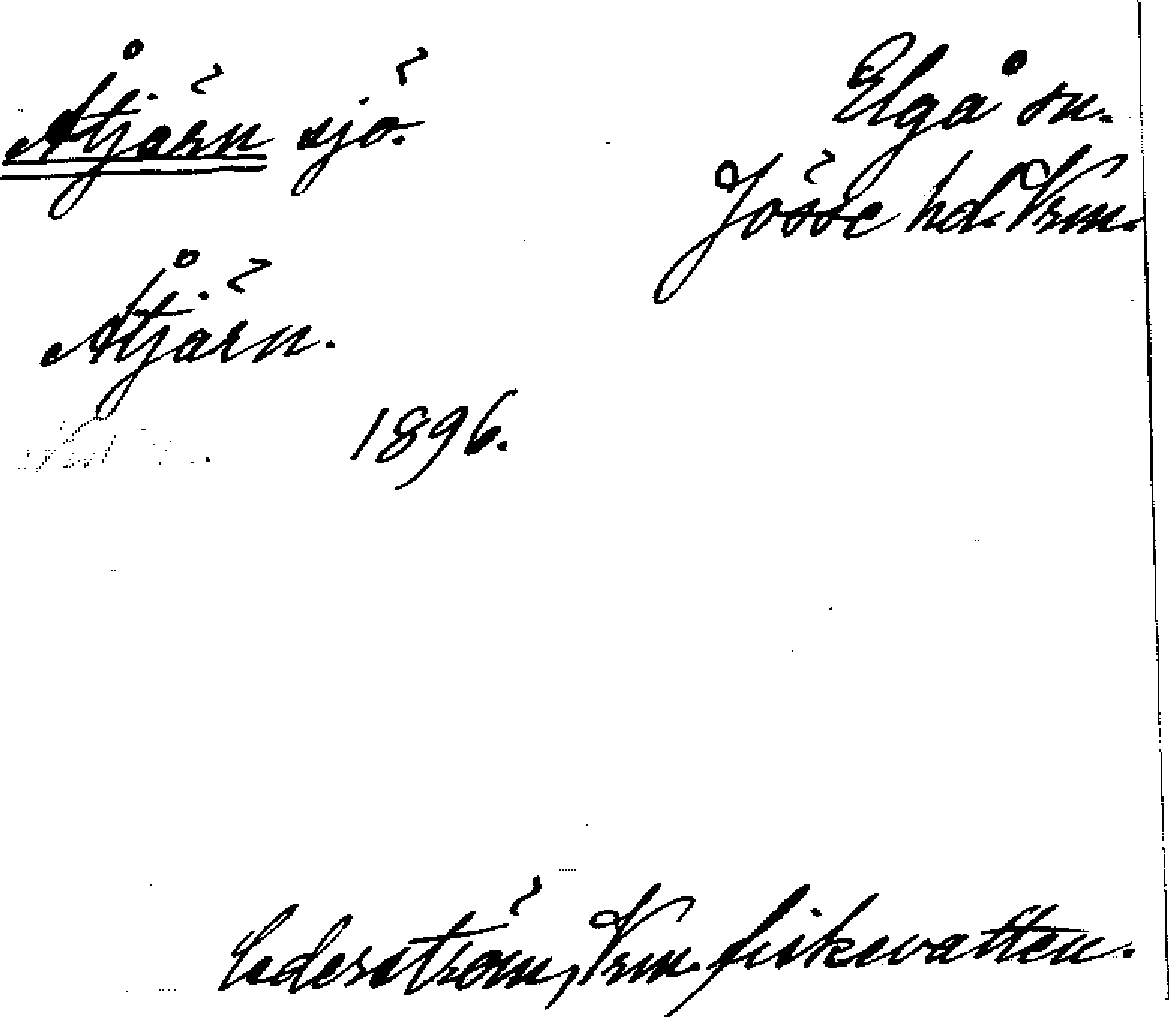 Åtjärn sjö.
Elgå sn.
Jösse hd. Vrm.
Åtjärn.
1896.
Cederström, Vrm. fiskevatten.